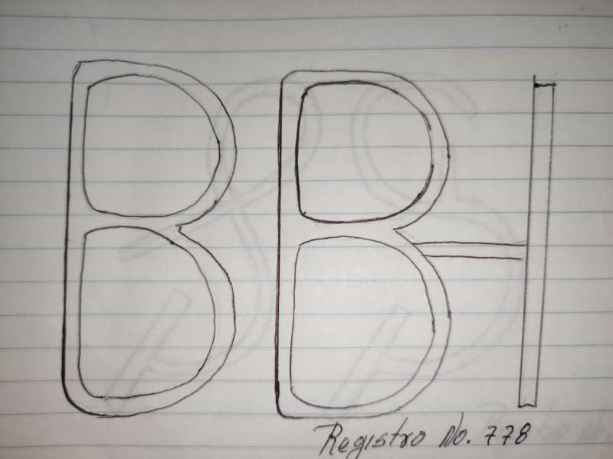 BBI
Registro No. 778